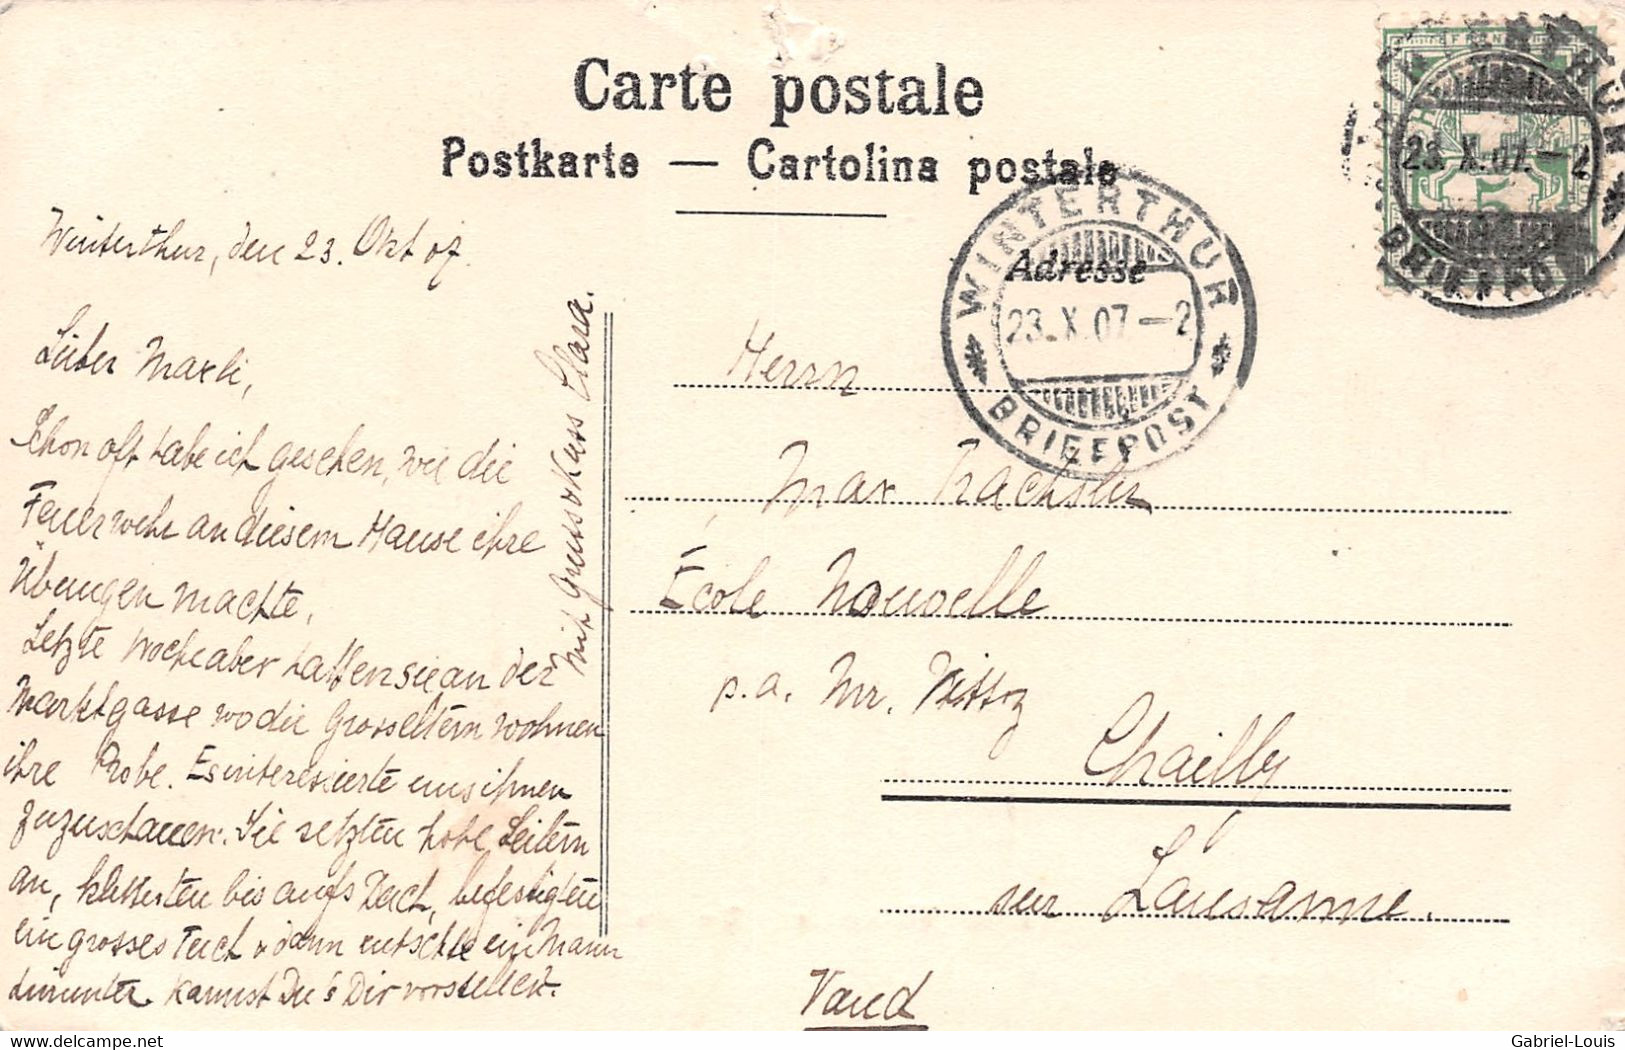 Carte postale
Postkarte — Cartolina postale
Winterthur, den 23. Okt 07.
Lieber Maxli,
Schon oft habe ich gesehen, wie die
Feuerwehr an diesem Hause ihre
Übungen machte,
Letzte Woche aber hatten sie an der
Marktgasse wo die Grosseltern wohnen
ihre Probe. Es interessierte uns ihnen
zuzuschauen. Sie setzten hohe Leitern
an, kletterten bis aufs Dach, befestigten
ein grosses Tuch & dann rutschte ein Mann
hinunter. Kannst Du's Dir vorstellen.
Mit Gruss & Kuss Clara.
WINTERTHUR
23.X.07–2
BRIEFPOST
Adresse
Herrn
Max
École Nouvelle
p.a. Mr.
Chailly
sur Lausanne.
Vaud
WINTERTHUR
23.X.07.–2
BRIEFPOST
5
www.delcampe.net
Gabriel-Louis